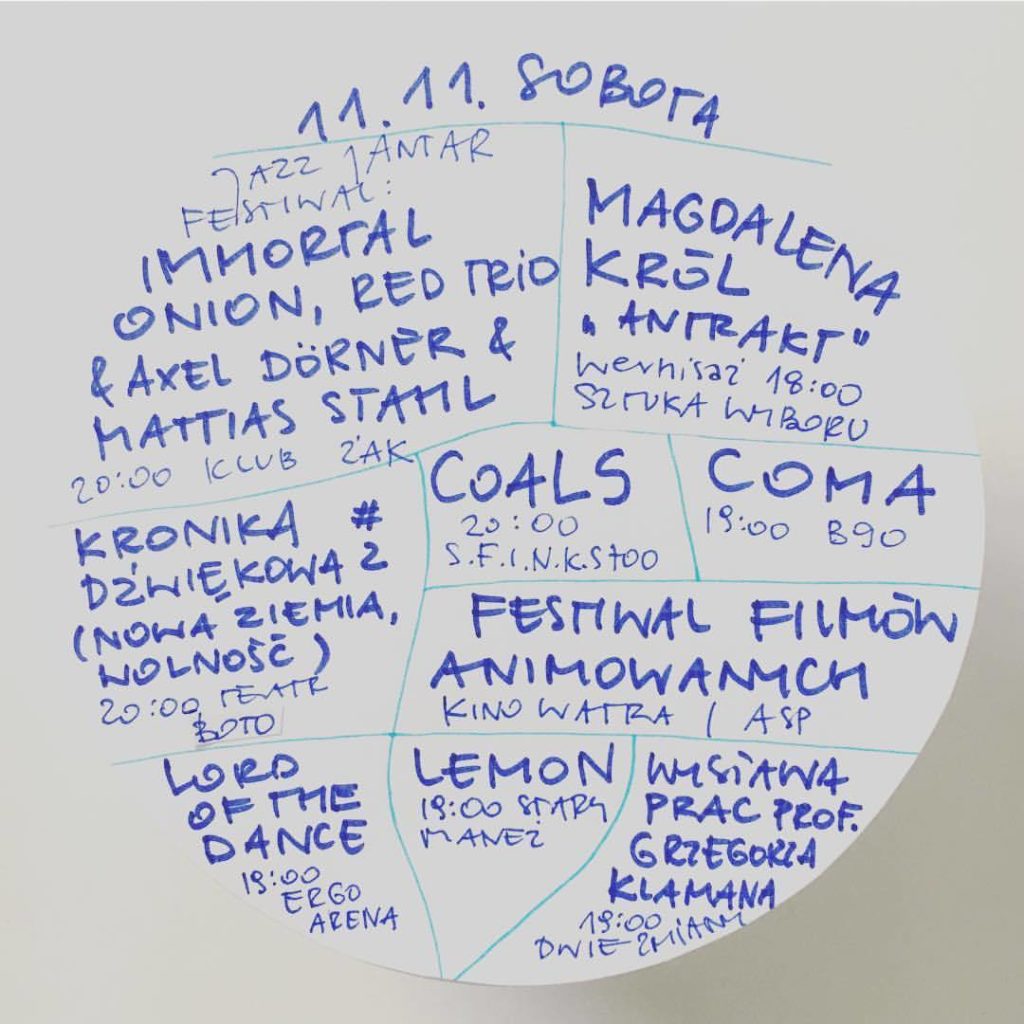 11.11. SOBOTA
JAZZ JANTAR
FESTIWAL:
IMMORTAL
ONION, RED TRIO
& AXEL DÖRNER &
MATTIAS STAHL
20:00 KLUB ŻAK
MAGDALENA
KRÓL
„ANTRAKT"
wernisaż 18:00
SZTUKA WYBORU
KRONIKA #
DŹWIĘKOWA 2
(NOWA ZIEMIA,
WOLNOŚĆ)
20:00, TEATR
BOTO
COALS
20:00
S.F.I.N.K.S700
COMA
19:00 B90
FESTIWAL FILMÓW
ANIMOWANYCH
KINO WATRA / ASP
LORD
OF THE
DANCE
19:00
ERGO
ARENA
LEMON
19:00 STARY
MANEŻ
WYSTAWA
PRAC PROF.
GRZEGORZA
KLAMANA
19:00
DWIE ZMIANY